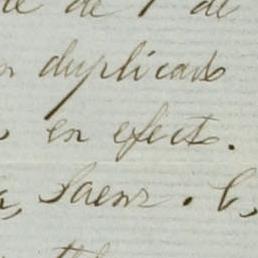 de 1 de
duplicado
en efecto.
Saenz. C,